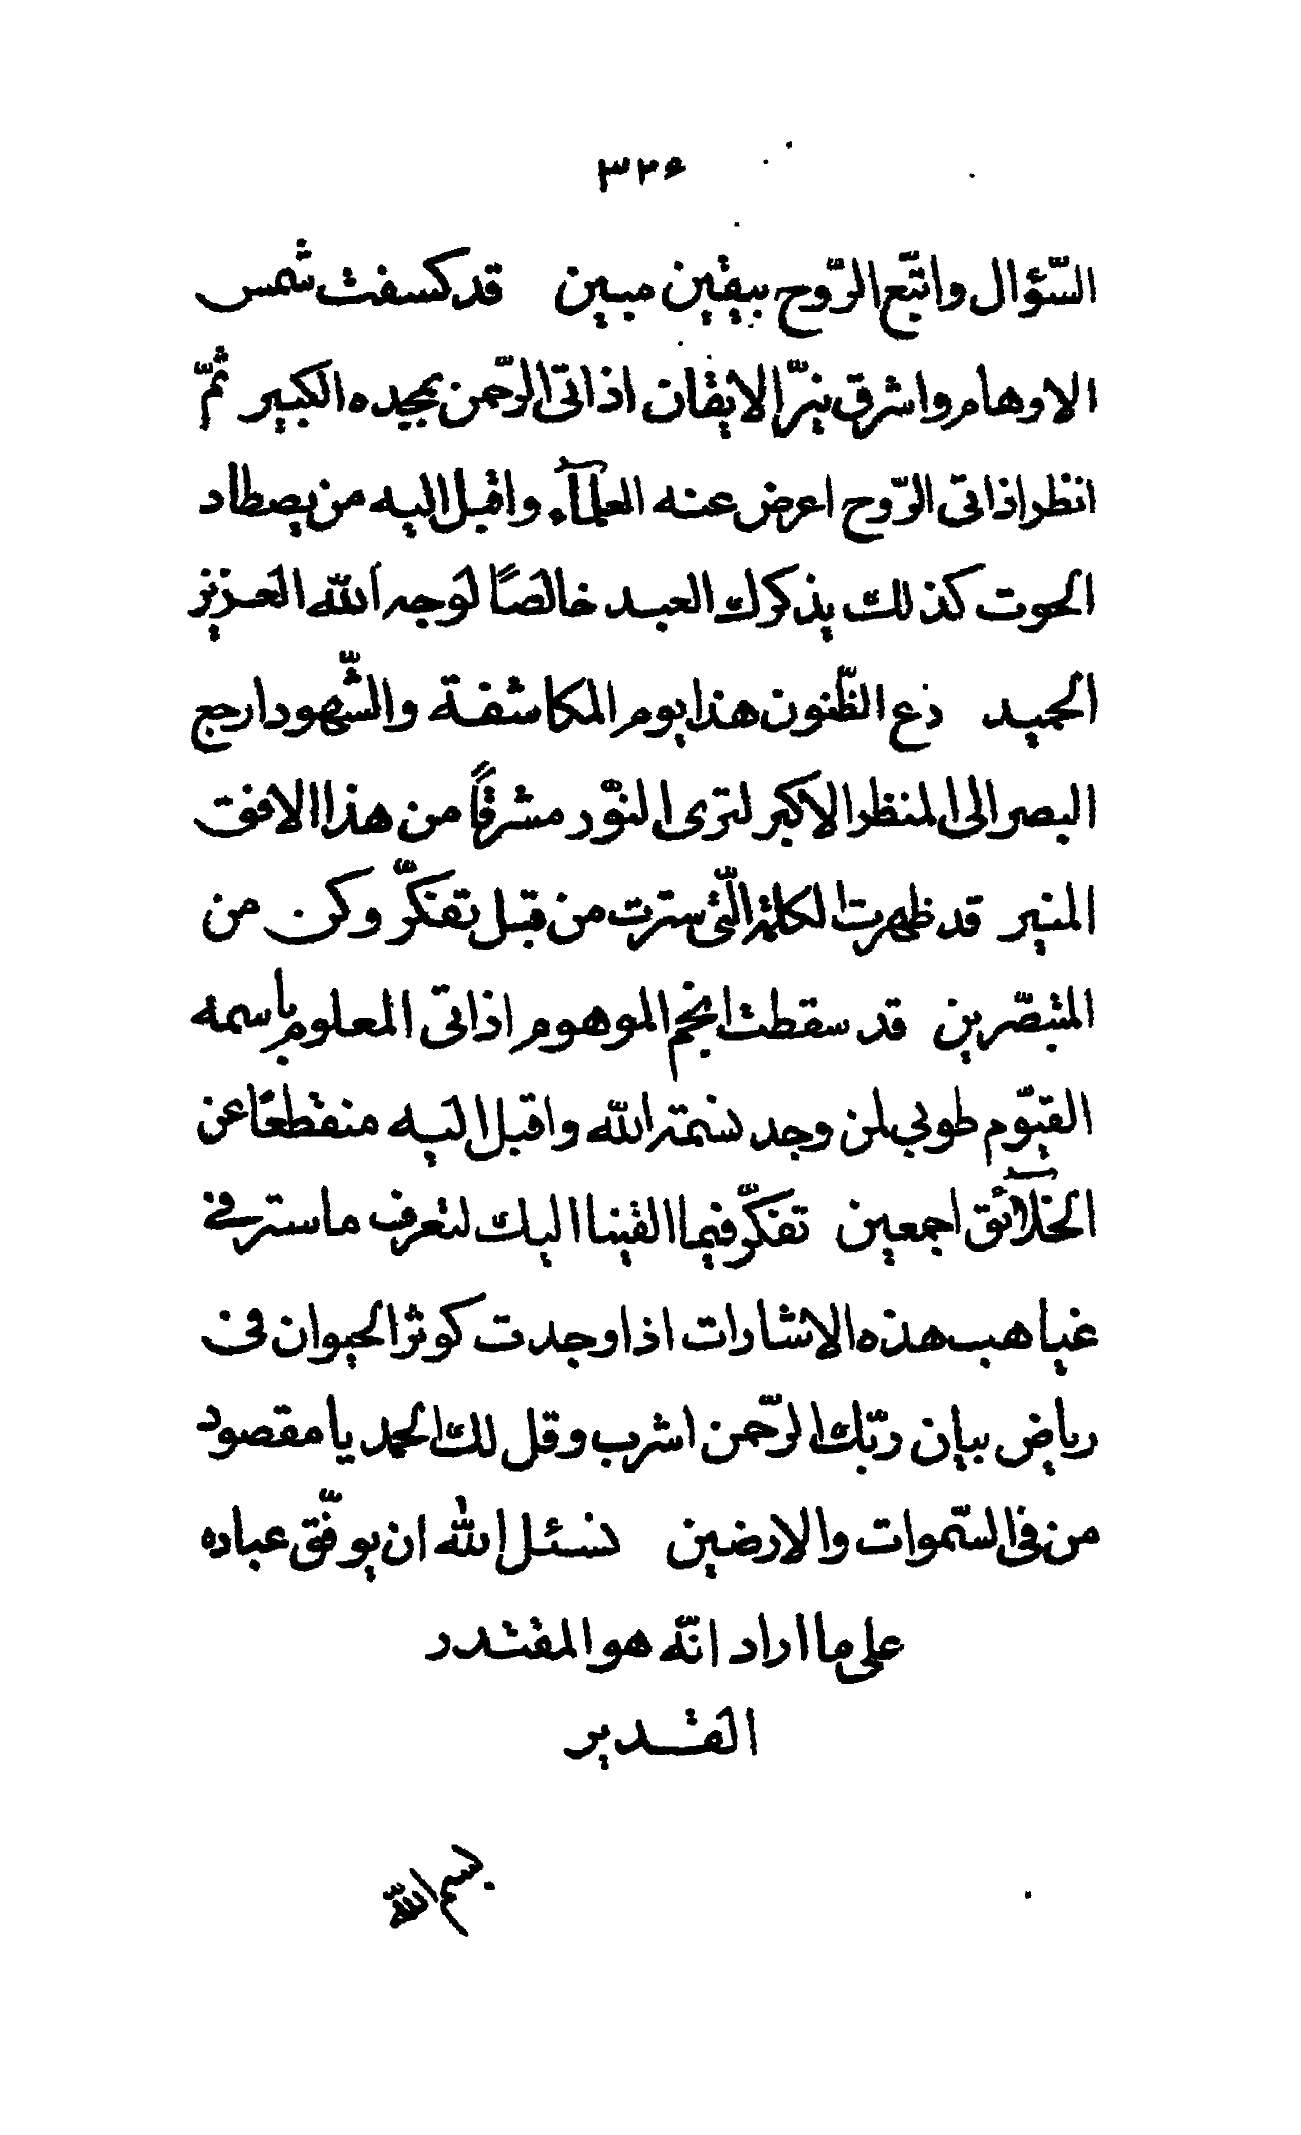 ٣٢٤
السّؤال واتّبع الرّوح بيقين مبين قد كسفت شمس
الاوهام واشرق نيّر الايقان اذ اتى الرّحمن بمجده الكبير ثمّ
انظر اذ اتى الرّوح اعرض عنه العلمآء واقبل اليه من يصطاد
الحوت كذلك يذكرك العبد خالصًا لوجه الله العزيز
الحميد دع الظّنون هذا يوم المكاشفة والشّهود ارجع
البصر الى المنظر الاكبر لترى النّور مشرقًا من هذا الافق
المنير قد ظهرت الكلمة الّتى سترت من قبل تفكّر وكن من
المتبصّرين قد سقطت انجم الموهوم اذ اتى المعلوم باسمه
القيّوم طوبى لمن وجد نسمة الله واقبل اليه منقطعًا عن
الخلآئق اجمعين تفكّر فيما القينا اليك لتعرف ما ستر فى
غياهب هذه الاشارات اذا وجدت كوثر الحيوان فى
رياض بيان ربّك الرّحمن اشرب وقل لك الحمد يا مقصود
من فى السّموات والارضين نسئل الله ان يوفّق عباده
على ما اراد انّه هو المقتدر
القدير
بسم اللّه